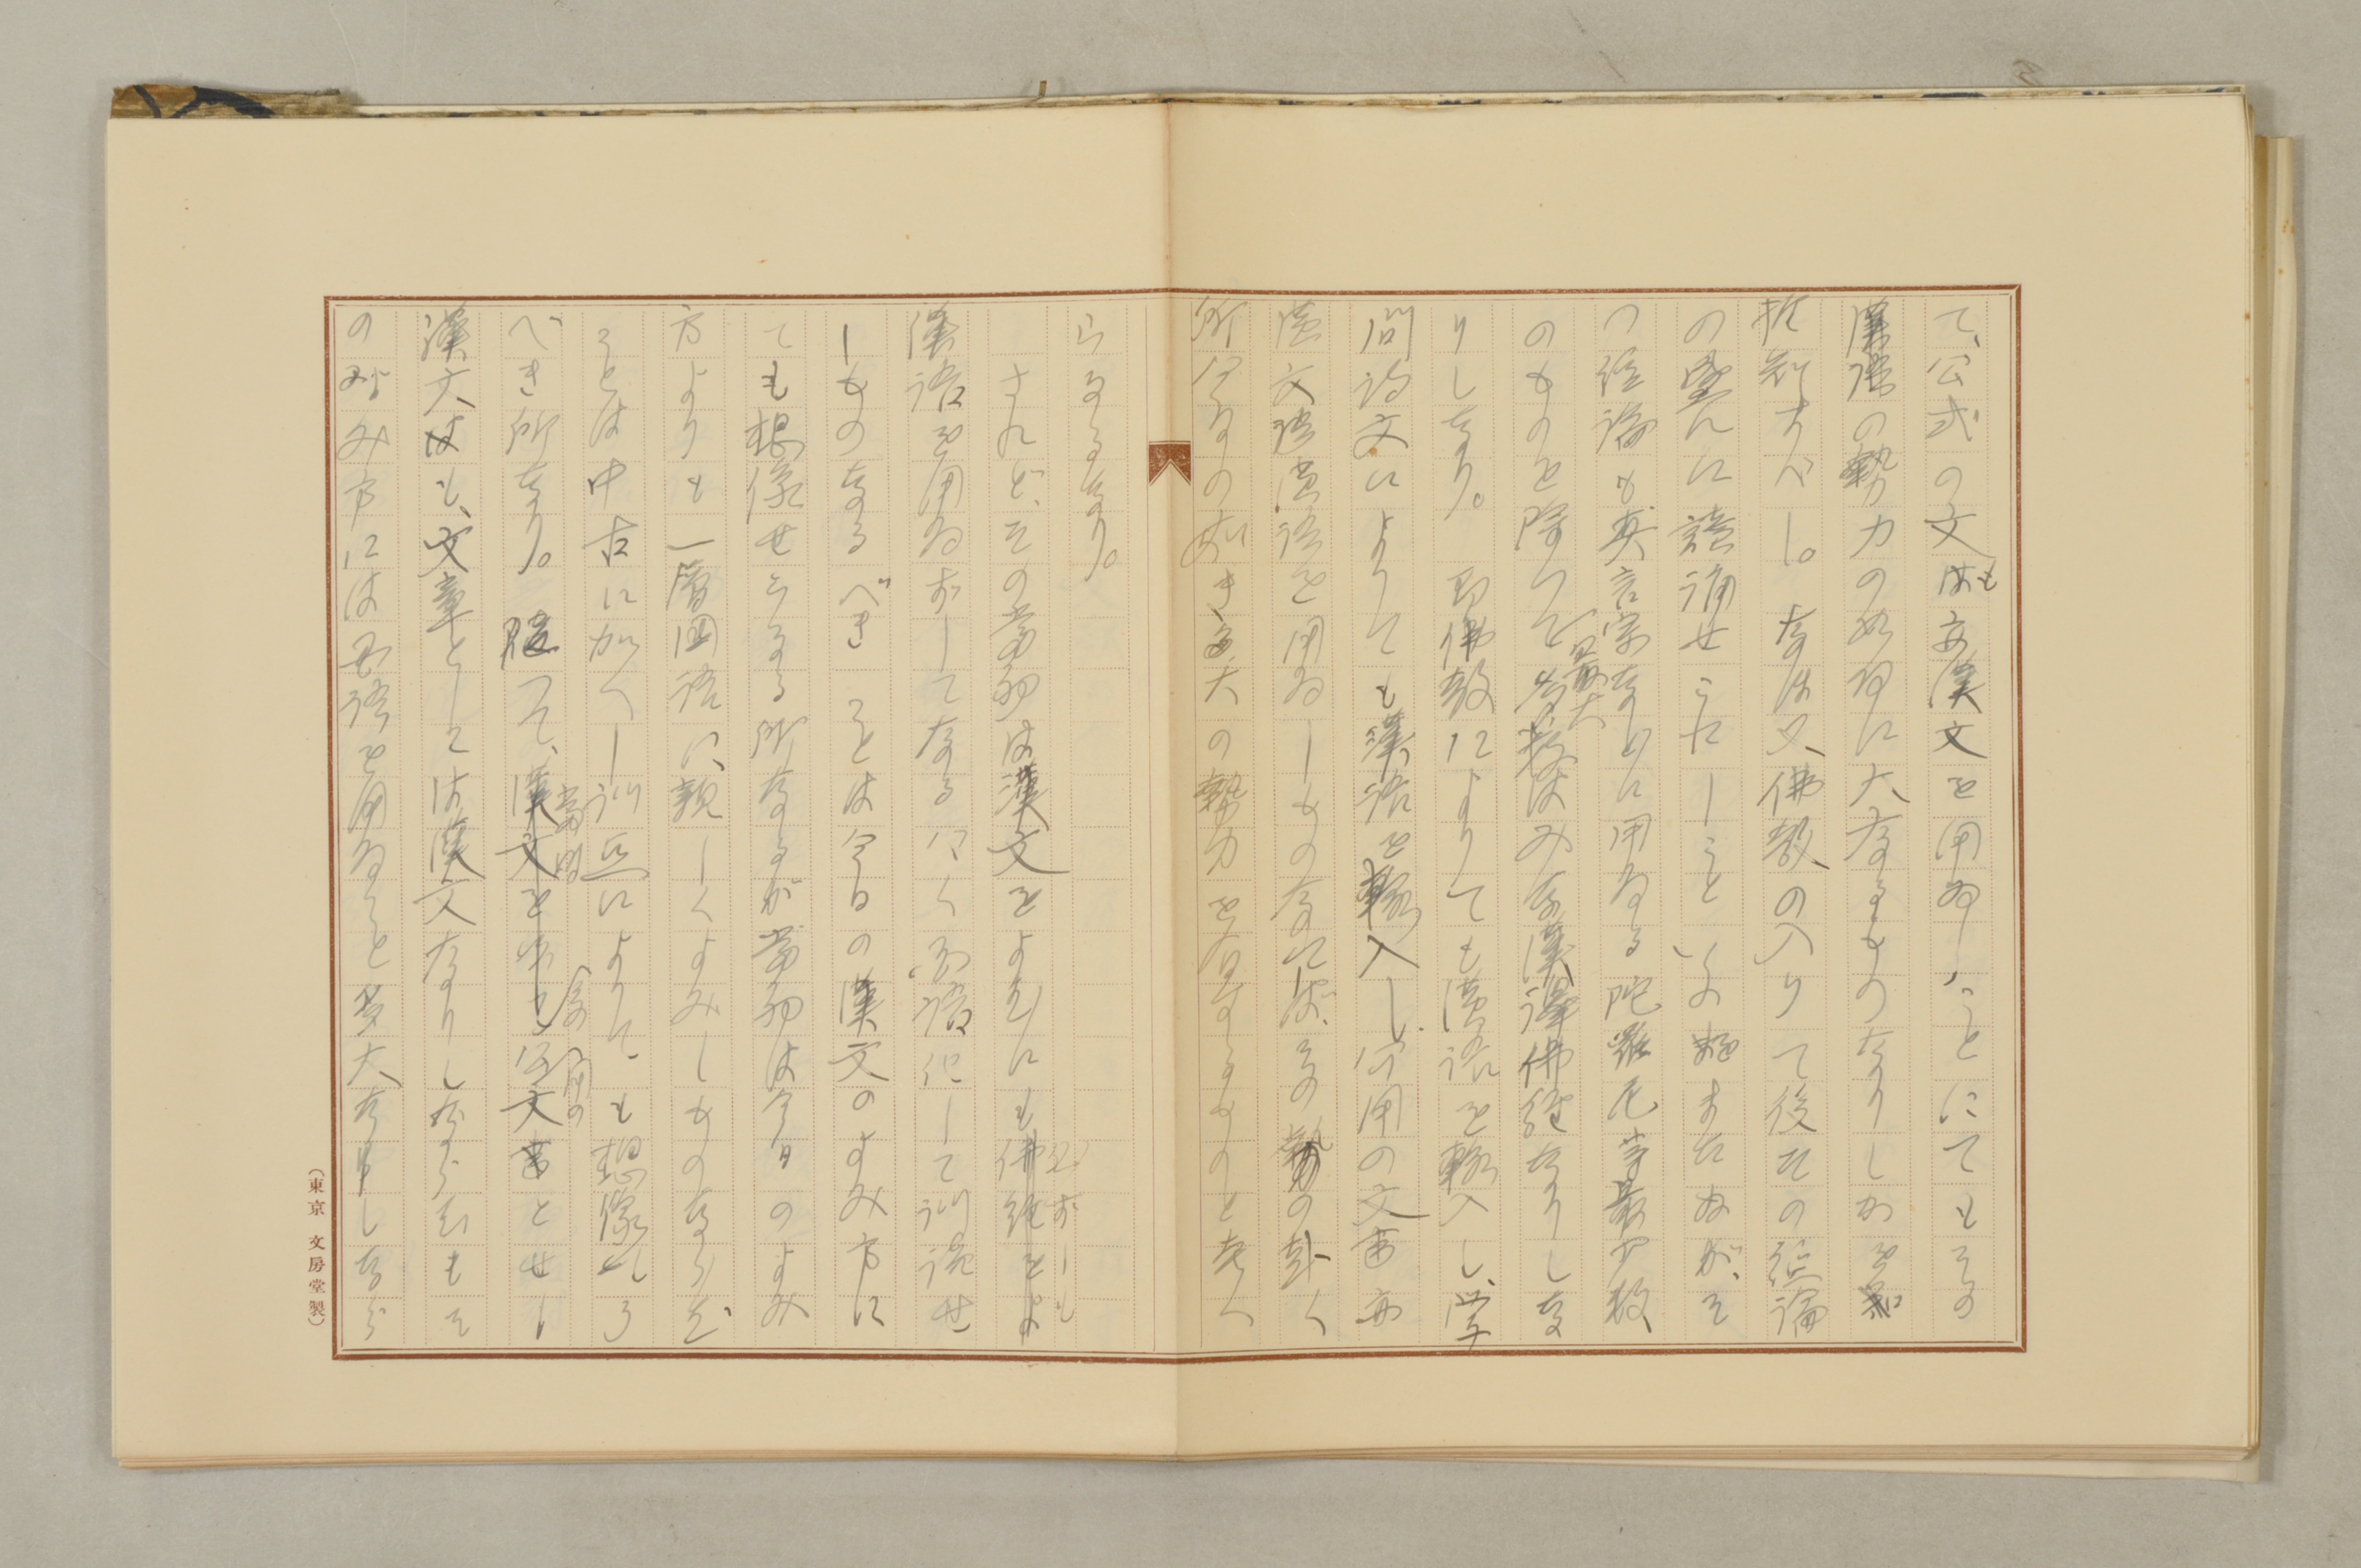 て、公式の文はも亦漢文を用ゐしことにてもその
漢語の勢力の如何に大なるものなりしかを知
推知すべし。なほ又佛教の入りて後その経論
の盛んに讀誦せられしこといふまたぬが、そ
の経論も真言宗などに用ゐる陀羅尼等最少数
のものを除いて
最大
は みな漢譯佛経なりしな
りし なり。即佛教によりても漢語を輸入し、学
問詩文によりても漢語を輸入し、公用の文書亦
漢文漢語を用ゐしものなれば、その勢の赴く
所 の如き 大の勢力を有するものと考へ
らるるなり。
されど、その当初は漢文をよむにも佛経をよ
必ずしも
漢語を用ゐずしてなるべく国語化して訓読せ
しものなるべきことは今日の漢文のよみ方に
ても想像せらるる所なるが当初は今日のよみ
方よりも一層国語に親しくよみしものならむ
ことは中古に加へし訓点によりても想像しう
べき所なり。随つて、漢文を 公文書とせし
当時
用の
漢文はも、文章としては漢文なりしならむもそ
のよみ方には国語を用ゐること多大なりしなら
(東京 文房堂製)